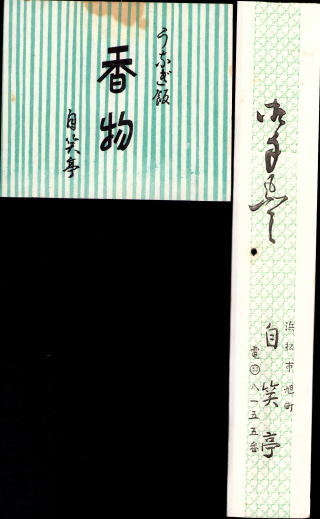 うなぎ飯
香物
自笑亭
御手もと
浜松市旭町
自笑亭
電㈡八一五五番